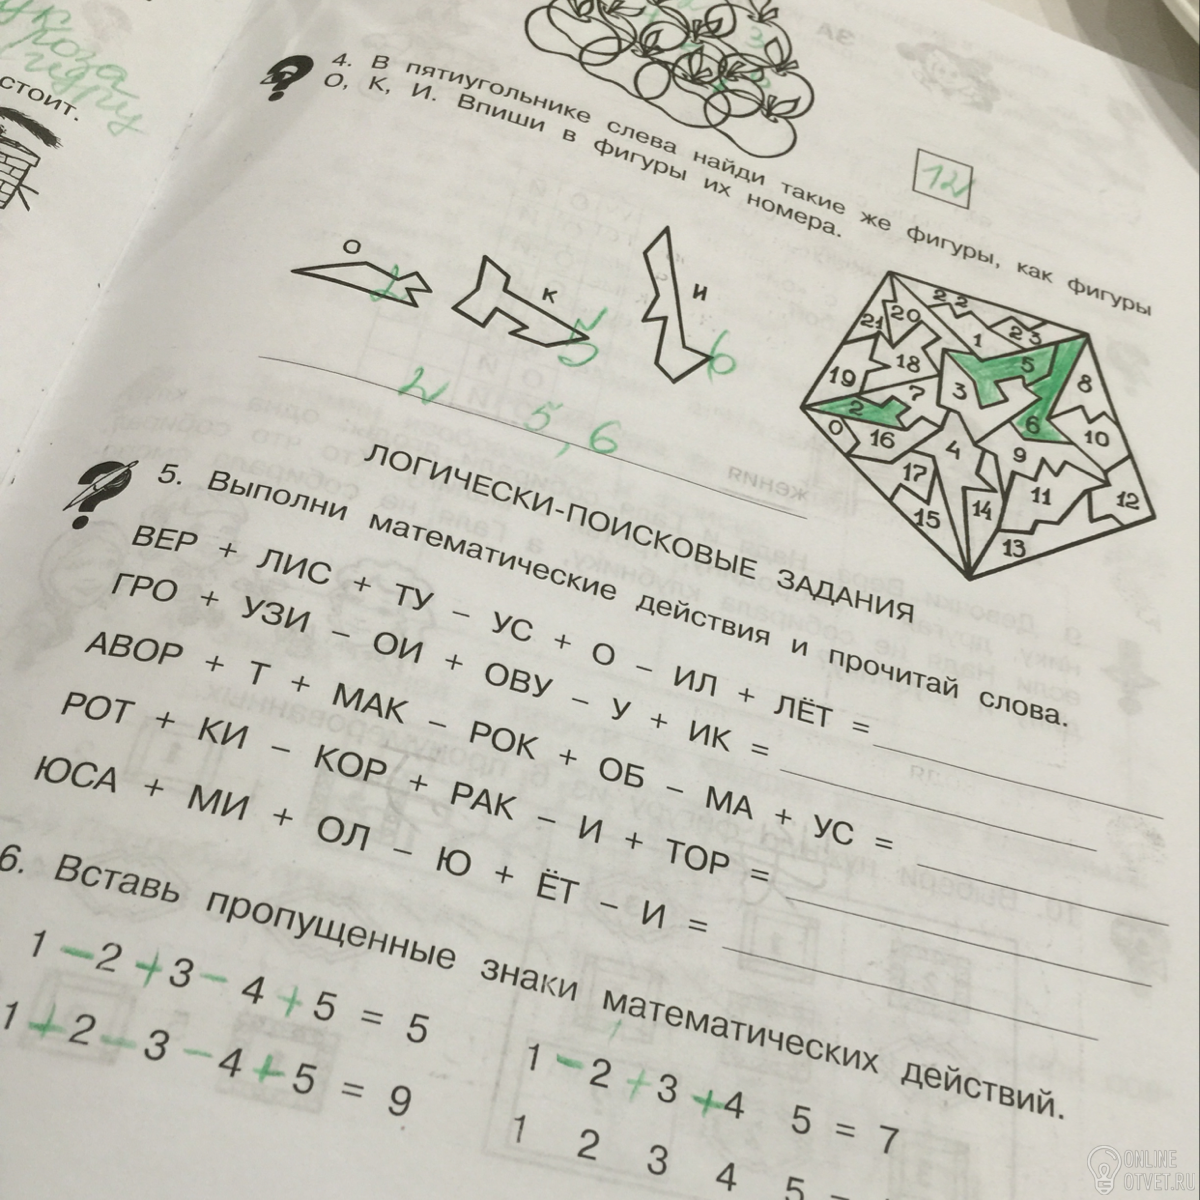 указа
гидру
стоит.
3
12
4. В пятиугольнике слева найди такие же фигуры, как фигуры
О, К, И. Впиши в фигуры их номера.
О
К
И
2
5
6
2 5, 6
22
23
1
20
21
5
18
3
8
19
7
2
6
0
16
4
9
10
17
11
12
15
14
13
ЛОГИЧЕСКИ-ПОИСКОВЫЕ ЗАДАНИЯ
5. Выполни математические действия и прочитай слова.
ВЕР + ЛИС + ТУ – УС + О – ИЛ + ЛЁТ =
ГРО + УЗИ – ОИ + ОВУ – У + ИК =
АВОР + Т + МАК – РОК + ОБ – МА + УС =
РОТ + КИ – КОР + РАК – И + ТОР =
ЮСА + МИ + ОЛ – Ю + ЁТ – И =
6. Вставь пропущенные знаки математических действий.
1 – 2 + 3 – 4 + 5 = 5
1 – 2 + 3 + 4 5 = 7
1 + 2 – 3 – 4 + 5 = 9
1 2 3 4 5
ONLINE
OTVET.RU